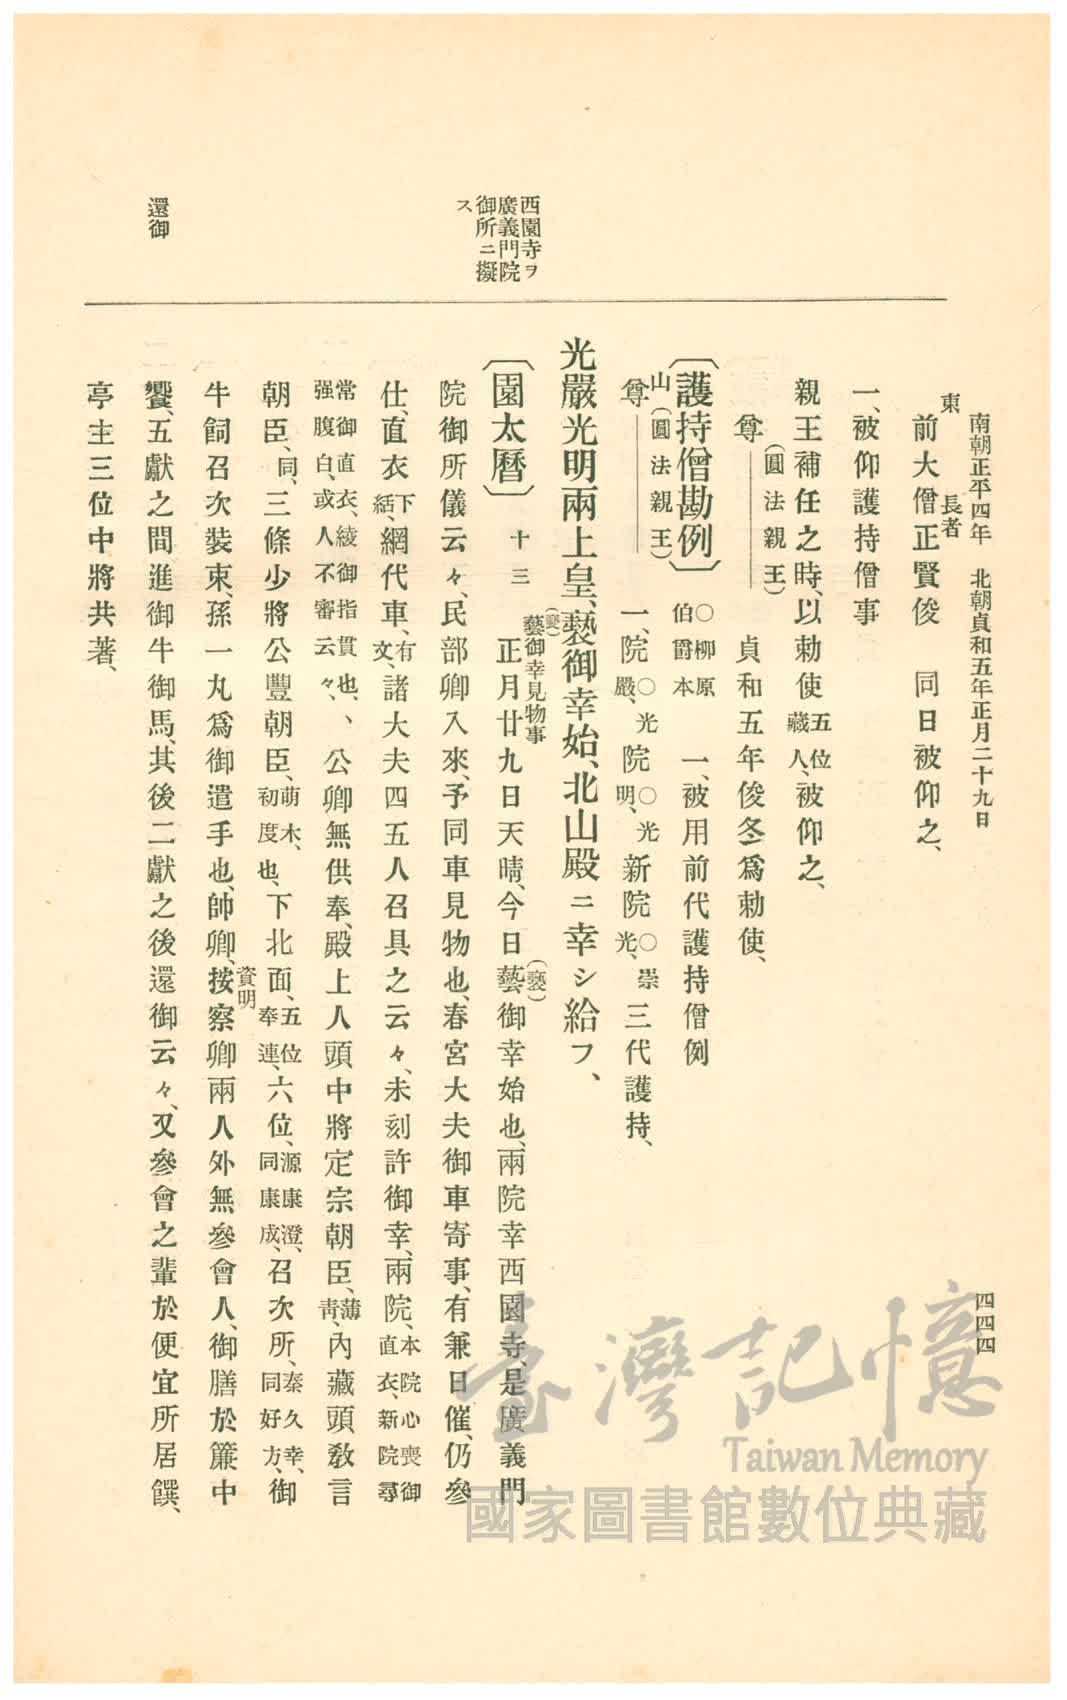 南朝正平四年　北朝貞和五年正月二十九日
四四四
東　長者
前大僧正賢俊　同日被仰之、
一、被仰護持僧事
親王補任之時、以勅使五位藏人、被仰之、
尊（圓法親王）　貞和五年俊冬爲勅使、
〔護持僧勘例〕〇柳原伯爵本　一、被用前代護持僧例
山（圓法親王）
尊　一、院〇光嚴、院〇光明、新院〇崇光、三代護持、
光嚴光明兩上皇、褻御幸始、北山殿ニ幸シ給フ、
西園寺ヲ
廣義門院
御所ニ擬
ス
（褻）
藝御幸見物事
〔園太曆〕十三　正月廿九日天晴、今日藝（褻）御幸始也、兩院幸西園寺、是廣義門
院御所儀云々、民部卿入來、予同車見物也、春宮大夫御車寄事、有兼日催、仍參
仕、直衣下結、網代車、有文、諸大夫四五人召具之云々、未刻許御幸、兩院、本院心喪御直衣、新院尋
常御直衣、綾御指貫也、强腹白、或人不審云々、、公卿無供奉、殿上人頭中將定宗朝臣、薄靑、內藏頭敎言
朝臣、同、三條少將公豐朝臣、萠木、初度也、下北面、五位奉連、六位、源康澄、同康成、召次所、秦久幸、同好方、御
牛飼召次裝束、孫一丸爲御遣手也、帥卿、資明按察卿兩人外無參會人、御膳於簾中
饗、五獻之間進御牛御馬、其後二獻之後還御云々、又參會之輩於便宜所居饌、
還御
亭主三位中將共著、
臺灣記憶
Taiwan Memory
國家圖書館數位典藏